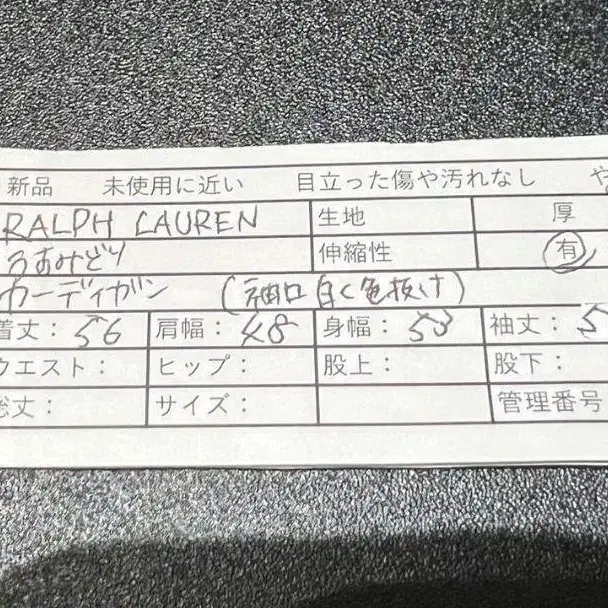 新品 未使用に近い 目立った傷や汚れなし や
RALPH LAUREN 生地 厚
うすみどり 伸縮性 有
カーディガン (袖口白く色抜け)
着丈: 56 肩幅: 48 身幅: 53 袖丈: 5
ウエスト: ヒップ: 股上: 股下:
総丈: サイズ: 管理番号